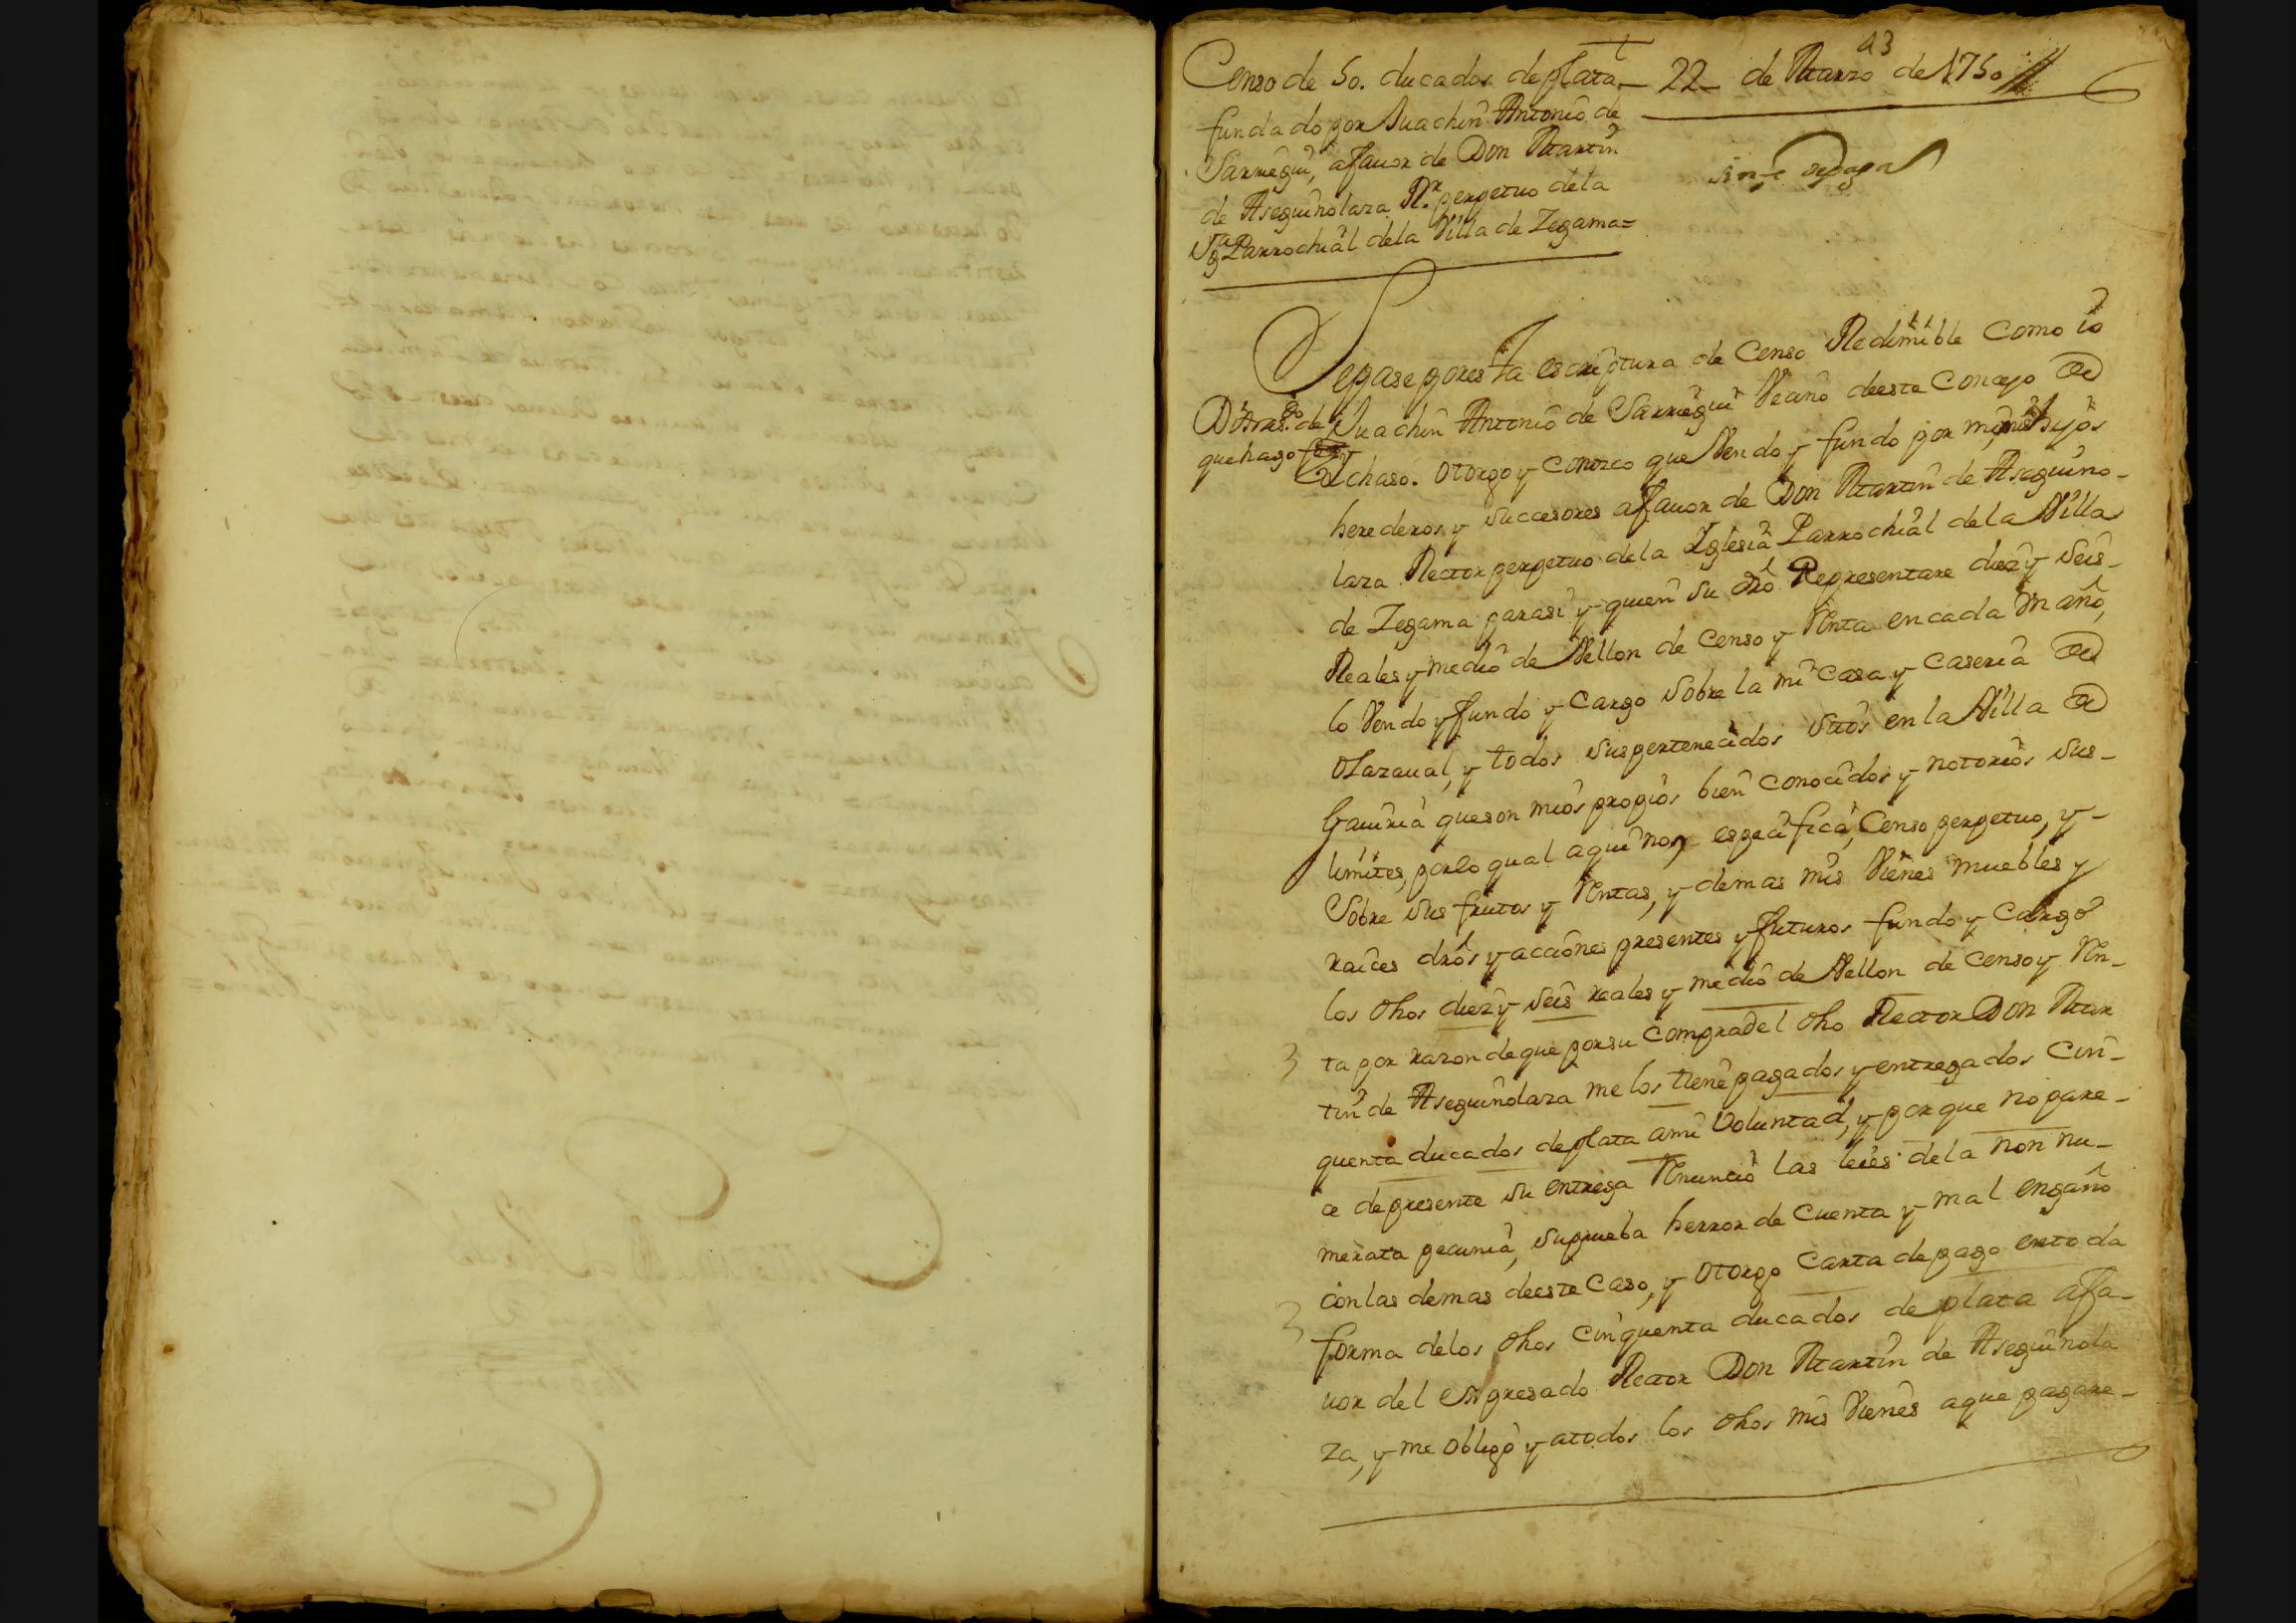 43
Censo de 50. ducados de plata 22 de Marzo de 1750
fundado por Juachin Antonio de
Sarriegui, a fauor de Don Martin
de Aseguinolaza R.r perpetuo de la
Parrochial de la Villa de Zegama=
Sepase por esta escriptura de Censo Redimible Como io
Juachin Antonio de Sarriegui Vecino de este Concejo de
que hago
Olchaso. Otorgo y Conozco que Vendo y fundo por mi, mis hijos
herederos, y succesores a fauor de Don Martin de Aseguino-
laza Rector perpetuo de la Iglesia Parrochial de la Villa
de Zegama para si y quien su dro Representare diez y seis
Reales y medio de Vellon de Censo y Renta en cada Un año,
lo Vendo y fundo y Cargo sobre la mi Casa y Caseria de
Olazaual, y todos sus pertenecidos sitos en la Villa de
Gauiria que son mios propios bien Conocidos y notorios sus-
limites, por lo qual aqui no especifica, Censo perpetuo, y-
Sobre sus frutos y Rentas, y demas mis Vienes muebles y
raices dros y acciones presentes y futuros fundo y Cargo
los dhos diez y seis reales y medio de Vellon de Censo y Ren-
ta por razon de que por su Compra del dho Rector Don Mar
tin de Aseguinolaza me los tiene pagados y entregados Cin-
quenta ducados de plata a mi Voluntad, y por que no pare-
ce de presente su entrega Renuncio las leies de la non nu-
merata pecunia, su prueba herror de Cuenta y mal engaño
con las demas de este Caso, y Otorgo Carta de pago en toda
forma de los dhos Cinquenta ducados de plata a fa-
uor del expresado Rector Don Martin de Aseguinola
za, y me obligo y a todos los dhos mis Vienes a que pagare-